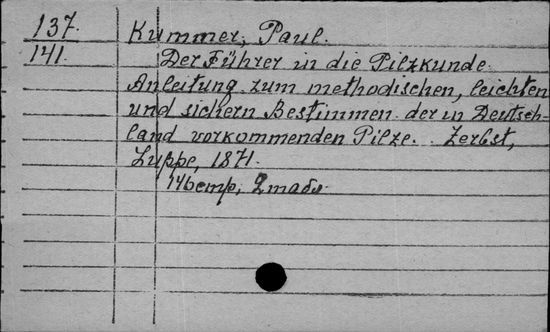 137.
141.
Kummer, Paul.
Der Führer in die Pilzkunde.
Anleitung zum methodischen, leichten
und sichern Bestimmen der in Deutsch-
land vorkommenden Pilze. Zerbst,
Luppe, 1871.
146 стр, 2 табл.